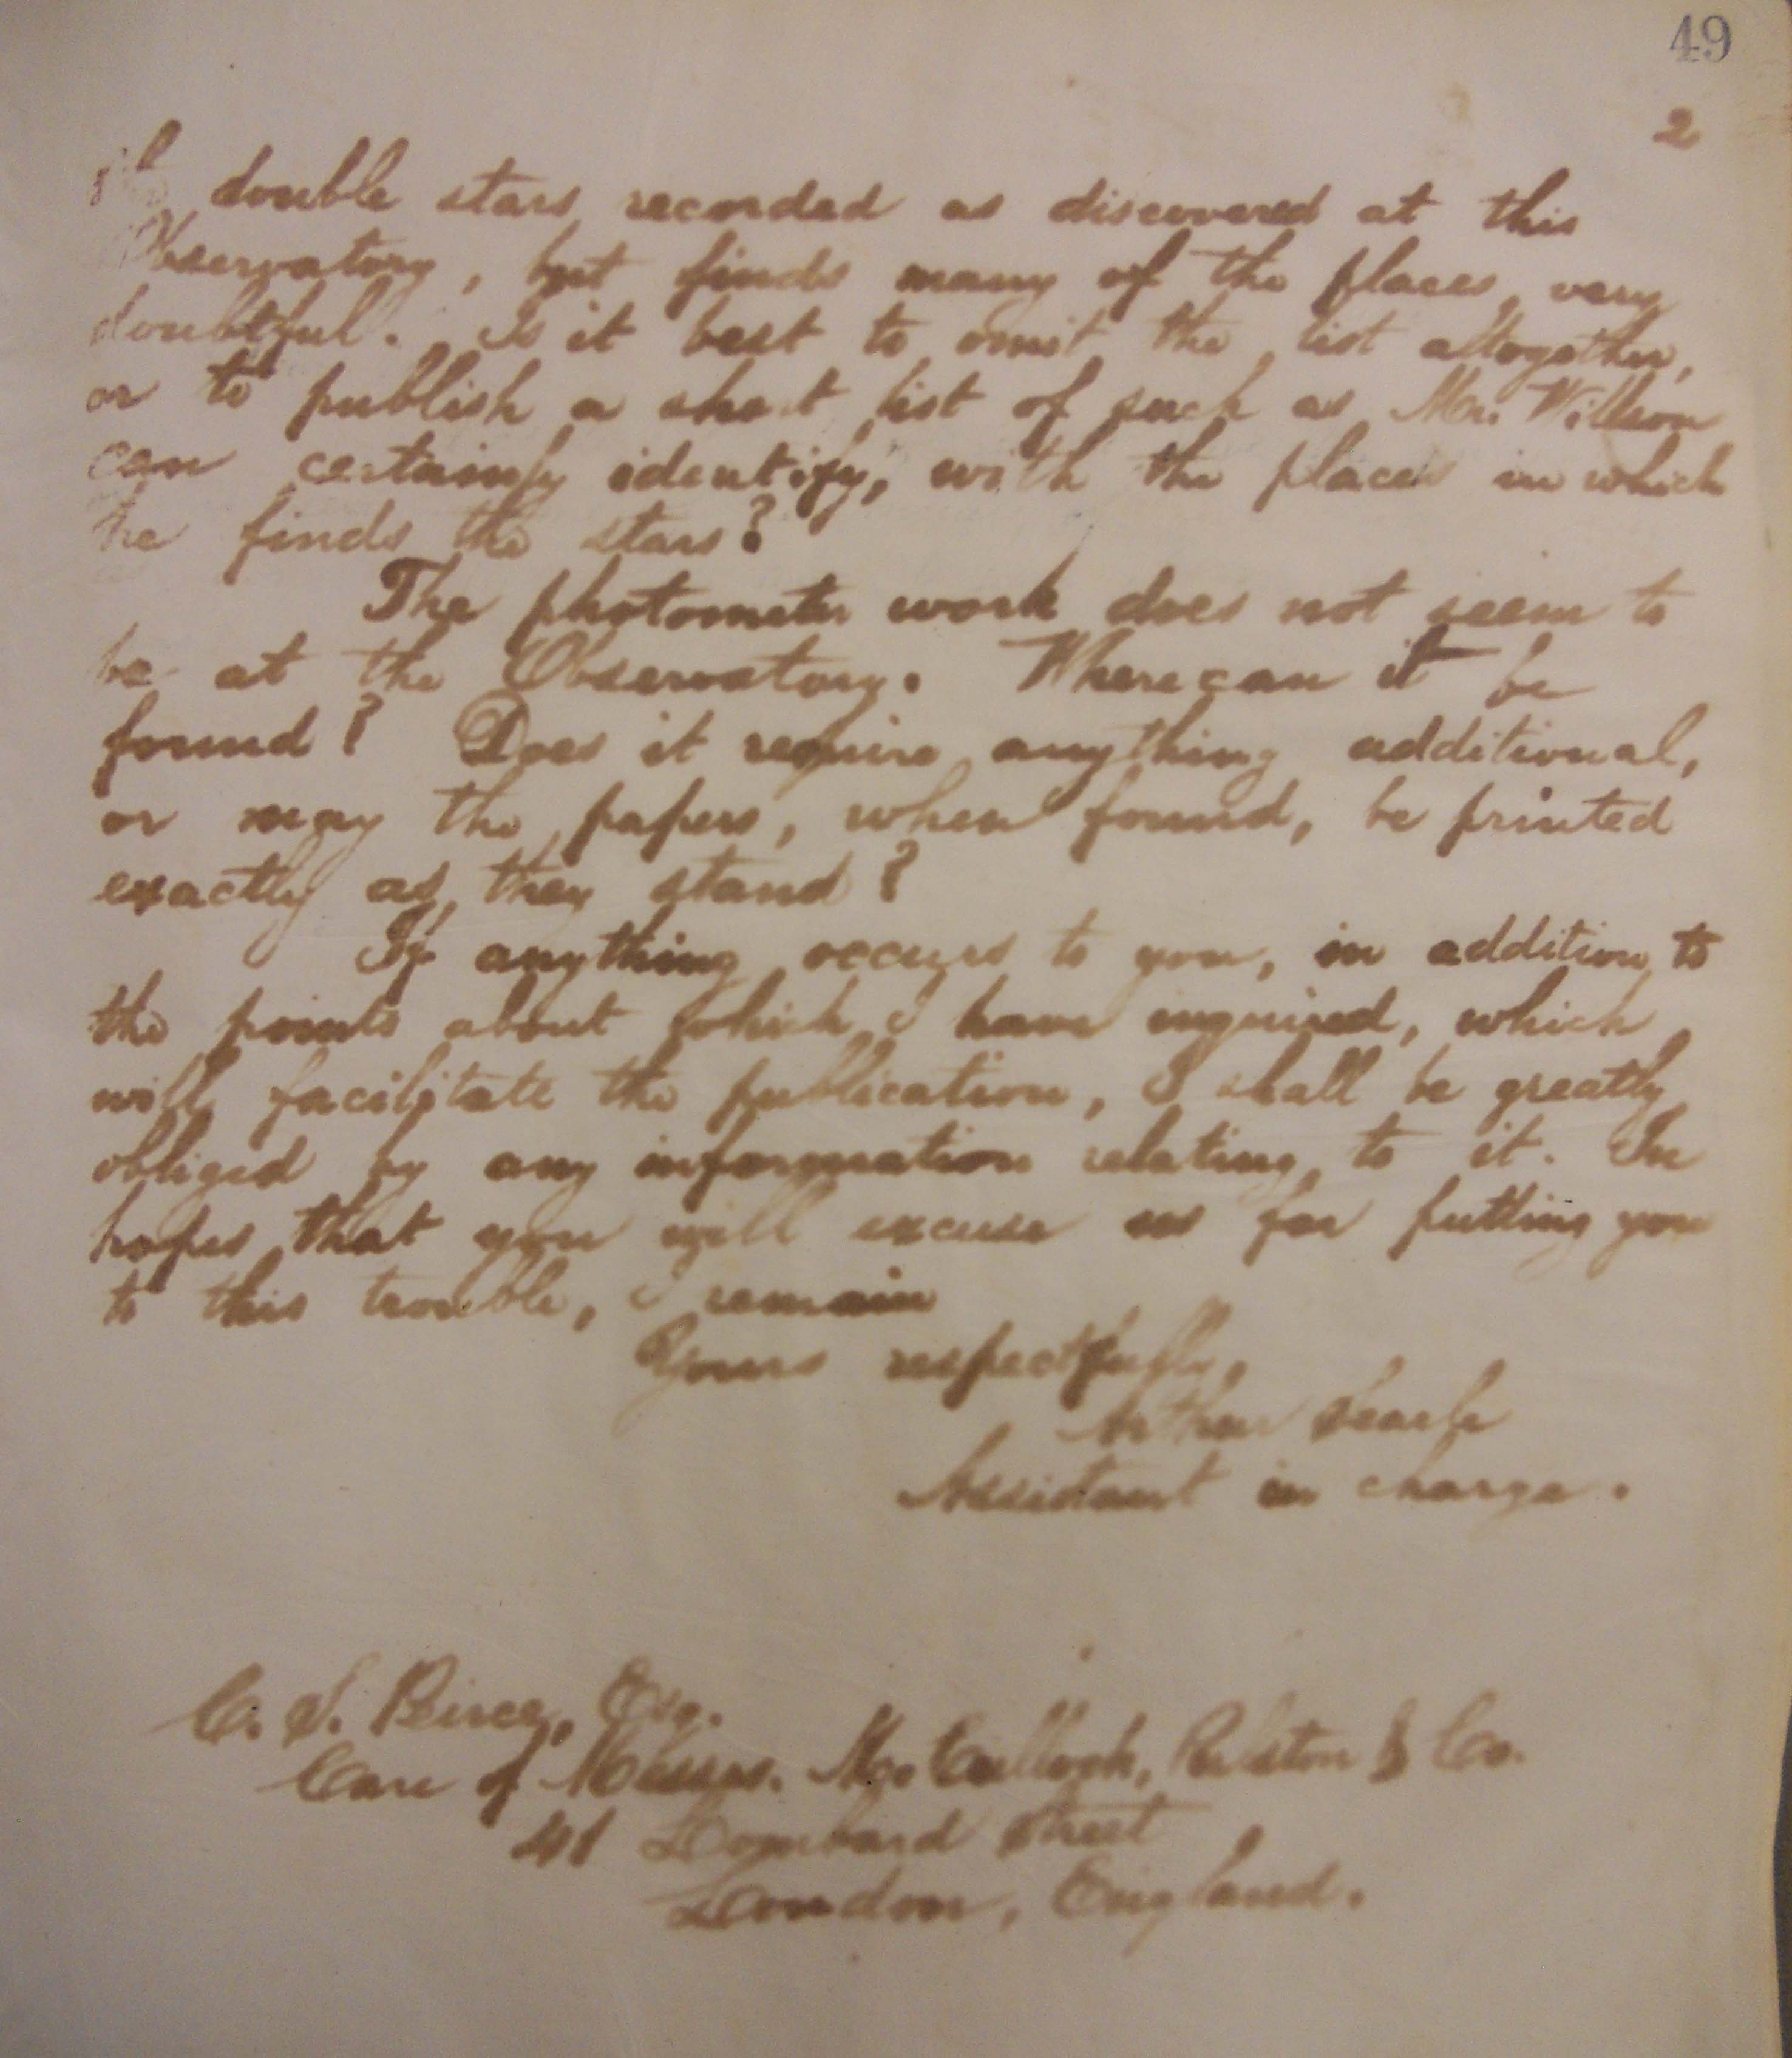 49
2
of double stars recorded as discovered at this
Observatory, but finds many of the places very
doubtful. Is it best to omit the list altogether,
or to publish a short list of such as Mr. Willson
can certainly identify, with the places in which
he finds the stars?
The photometer work does not seem to
be at the Observatory. Where can it be
found? Does it require anything additional,
or may the papers, when found, be printed
exactly as they stand?
If anything occurs to you, in addition to
the points about which I have inquired, which
will facilitate the publication, I shall be greatly
obliged by any information relating to it. In
hopes that you will excuse us for putting you
to this trouble, I remain
Yours respectfully,
Arthur Searle
Assistant in charge.
C. S. Peirce, Esq.
Care of Messrs. MacCulloch, & Co.
41 Lombard Street
London, England.